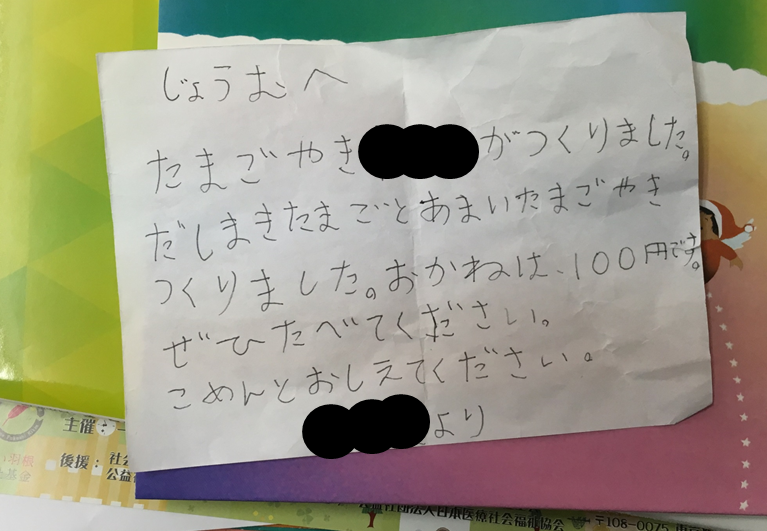 じょうむへ
たまごやき がつくりました。
だしまきたまごとあまいたまごやき
つくりました。おかねは、100円です。
ぜひたべてください。
こめんとおしえてください。
より
主催：
後援：社会
公益
公益社団法人日本医療社会福祉協会
〒108-0075